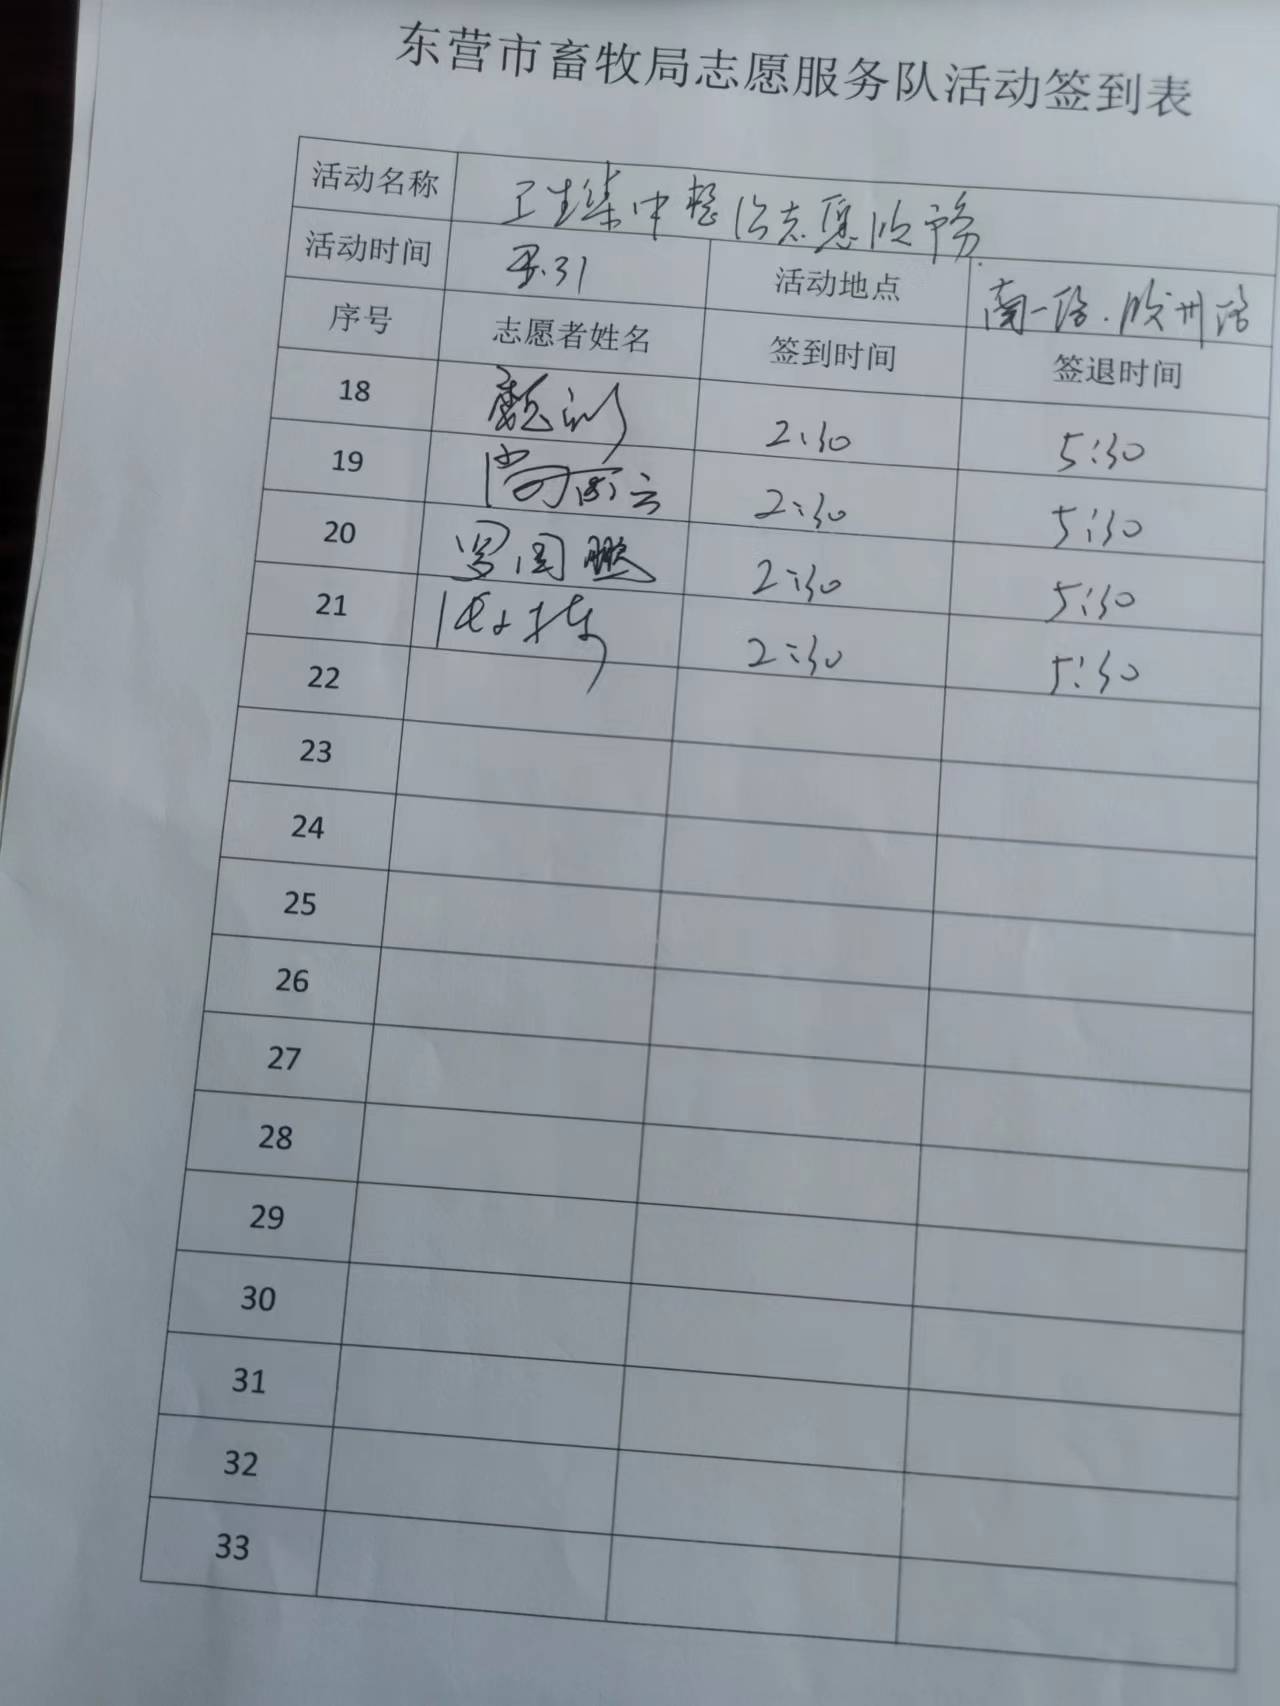 东营市畜牧局志愿服务队活动签到表
活动名称 卫生集中整治志愿服务
活动时间 .31 活动地点 南一路.胶州路
序号 志愿者姓名 签到时间 签退时间
18 2:30 5:30
19 尚 云 2:30 5:30
20 罗国鹏 2:30 5:30
21 2:30 5:30
22
23
24
25
26
27
28
29
30
31
32
33